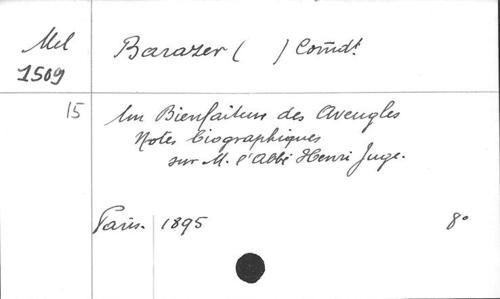 Mel
1509
Barazer ( ) Comdt
15
Un Bienfaiteur des Aveugles
Notes biographiques
sur M. l'Abbé Henri Juge.
Paris. 1895
8°